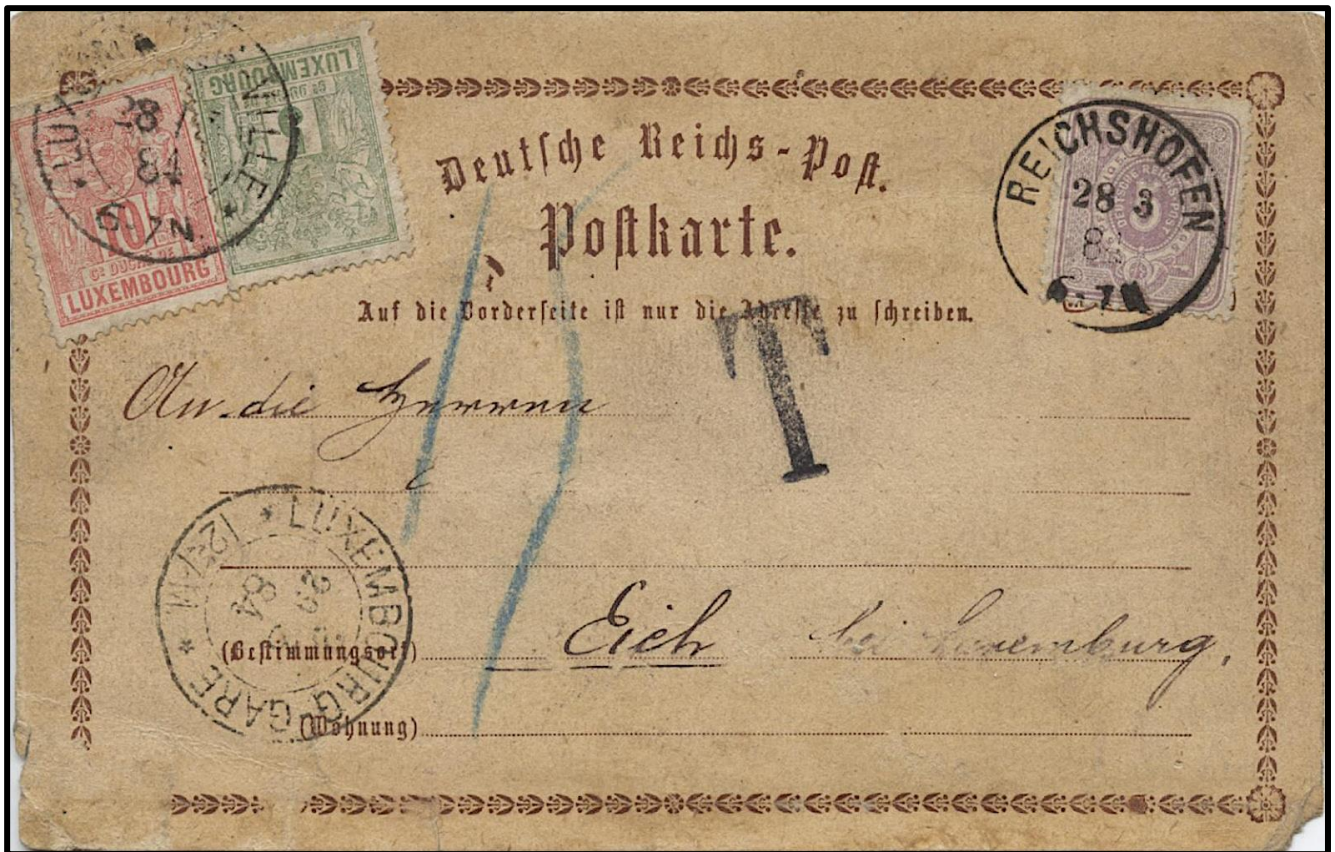 LUXG VILLE
28
84
6-7N.
10
Gᴰ DUCHÉ DE
LUXEMBOURG
LUXEMBOURG
Deutsche Reichs-Post.
Postkarte.
Auf die Vorderseite ist nur die Adresse zu schreiben.
REICHSHOFEN
28 3
6-7N
T
15
An die Herren
LUXEMBOURG GARE
29
84
12-1M
(Bestimmungsort) Eich bei Luxemburg.
(Wohnung)